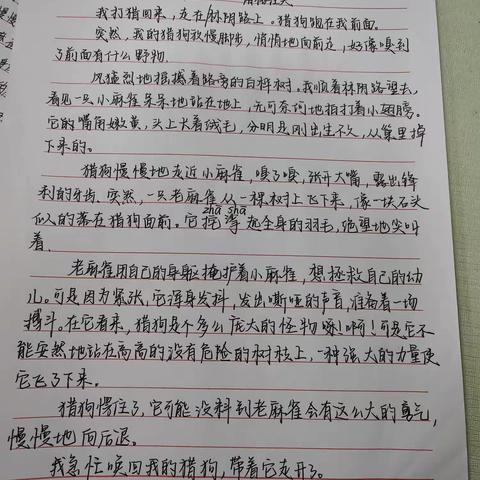 我打猎回来，走在林阴路上。猎狗跑在我前面。
突然，我的猎狗放慢脚步，悄悄地向前走，好像嗅到
了前面有什么野物。
风猛烈地摇撼着路旁的白桦树。我顺着林阴路望去，
看见一只小麻雀呆呆地站在地上，无可奈何地拍打着小翅膀。
它的嘴角嫩黄，头上长着绒毛，分明是刚出生不久，从巢里掉
下来的。
猎狗慢慢地走近小麻雀，嗅了嗅，张开大嘴，露出锋
利的牙齿。突然，一只老麻雀从一棵树上飞下来，像一块石头
似的落在猎狗面前。它挓挲起全身的羽毛，绝望地尖叫
zhā shā
着。
老麻雀用自己的身躯掩护着小麻雀，想拯救自己的幼
儿。可是因为紧张，它浑身发抖，发出嘶哑的声音，准备着一场
搏斗。在它看来，猎狗是个多么庞大的怪物啊！可是它不
能安然地站在高高的没有危险的树枝上，一种强大的力量使
它飞了下来。
猎狗愣住了，它可能没料到老麻雀会有这么大的勇气，
慢慢地向后退。
我急忙唤回我的猎狗，带着它走开了。